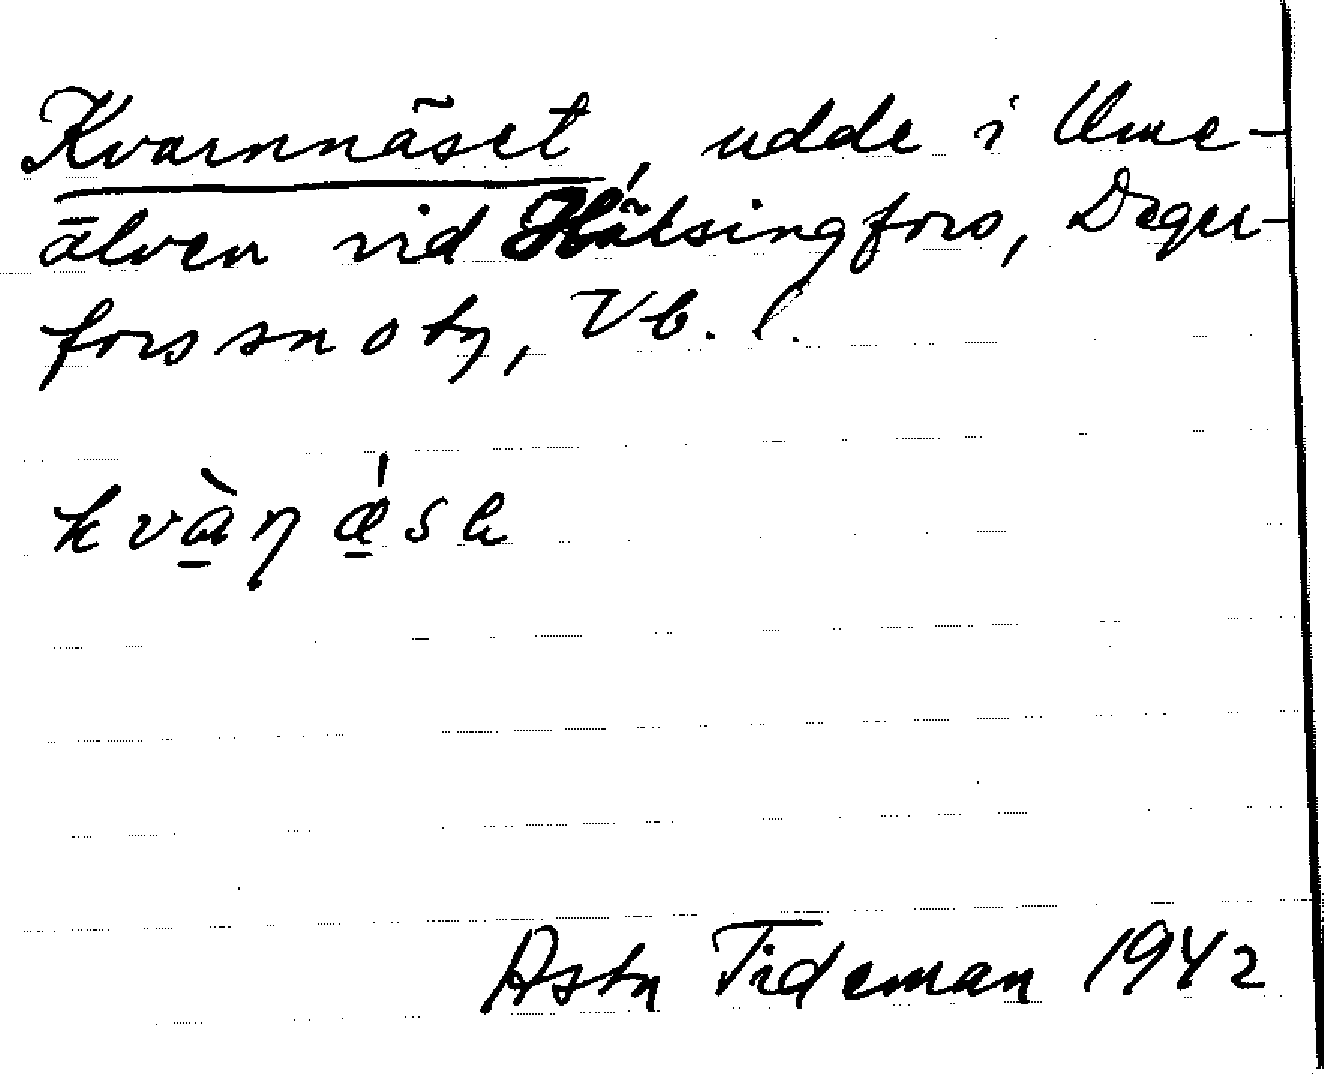 Kvarnnäset, udde i Ume-
älven vid Hälsingfors, Deger-
fors sn o tg, Vb.
kvà̱ŋǽ̱sɘ
Astn Tideman 1942